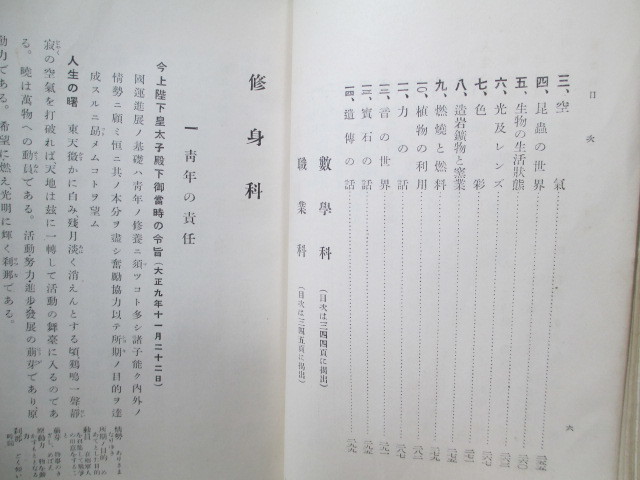 目次
三、空氣
四、昆蟲の世界
五、生物の生活狀態
六、光及レンズ
七、色彩
八、造岩鑛物と窯業
九、燃燒と燃料
一〇、植物の利用
一一、力の話
一二、音の世界
一三、寶石の話
一四、遺傳の話
數學科(目次は三四四頁に揭出)
職業科(目次は三四五頁に揭出)
六
修身科
一 靑年の責任
今上陛下皇太子殿下御當時の令旨(大正九年十一月二十二日)
國運進展ノ基礎ハ靑年ノ修養ニ須ツコト多シ諸子能ク內外ノ
情勢ニ顧ミ恒ニ其ノ本分ヲ盡シ奮勵協力以テ所期ノ目的ヲ達
成スルニ勗メムコトヲ望ム
人生の曙 東天微かに白み殘月淡く消えんとする頃鷄鳴一聲靜
寂の空氣を打破れば天地は玆に一轉して活動の舞臺に入るのであ
る。曉は萬物への動員である。活動努力進步發展の萠芽であり原
動力である。希望に燃え光明に輝く刹那である。